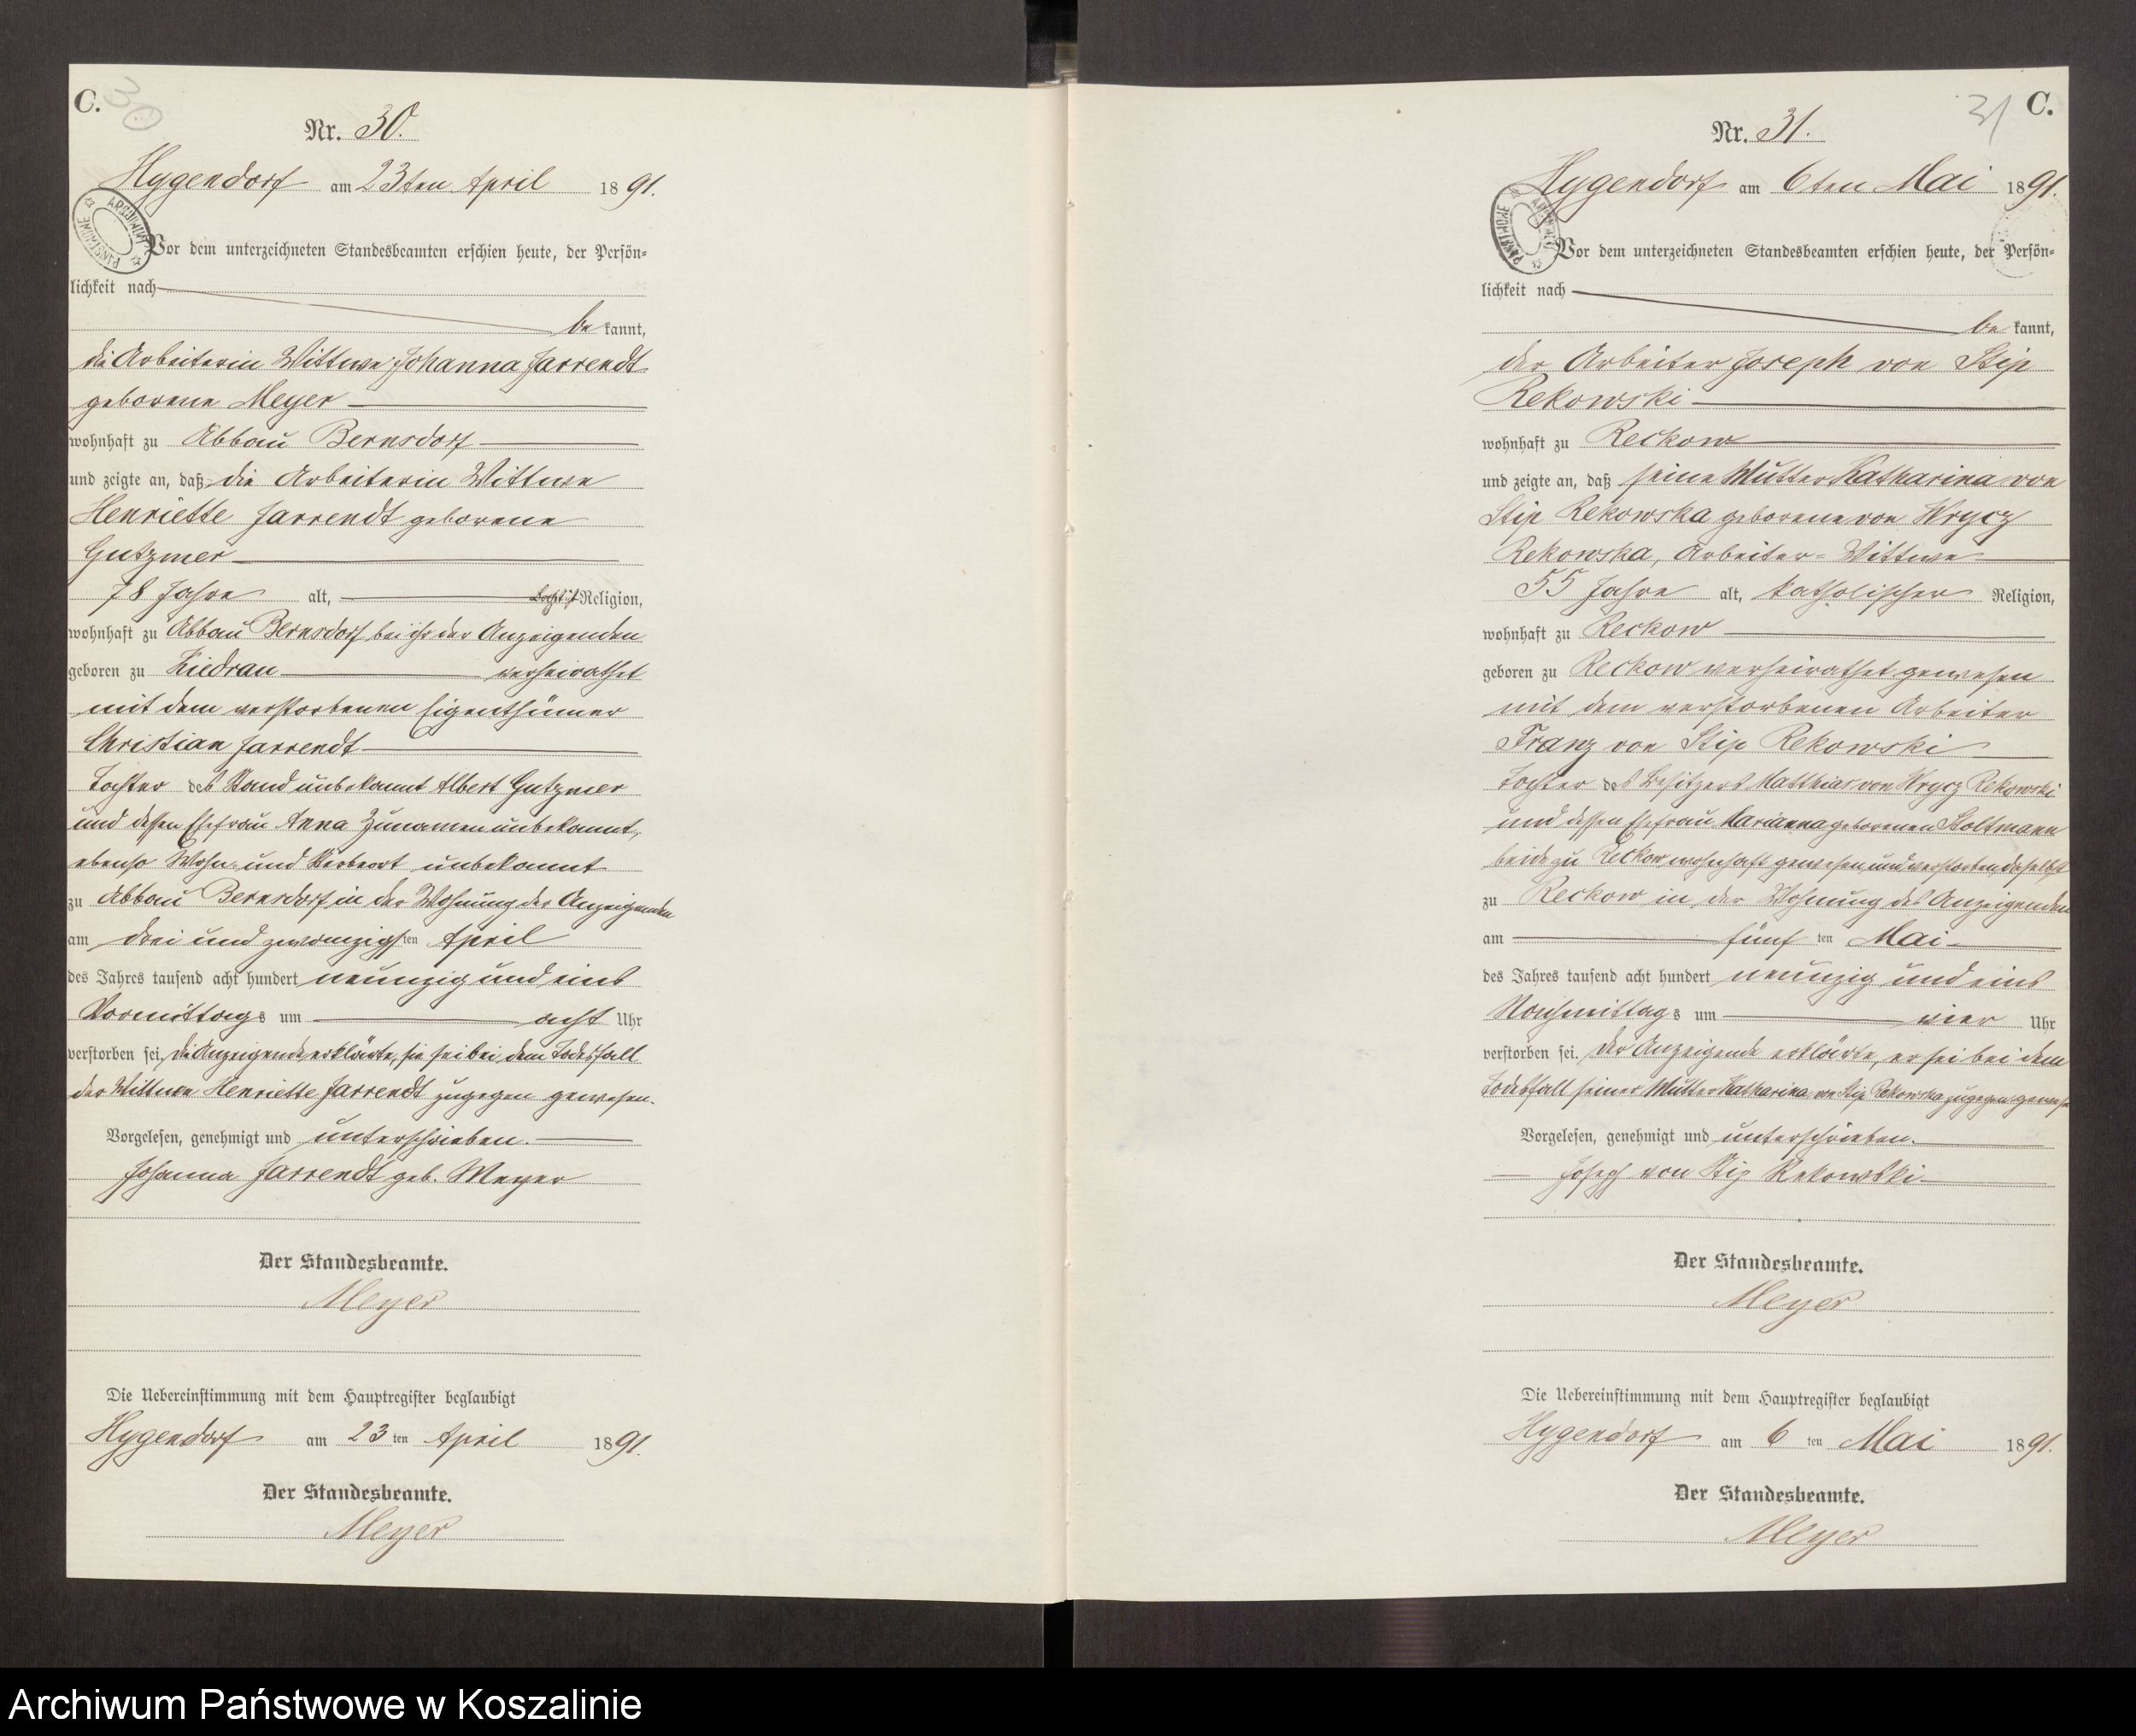 C.
30
Nr. 30.
Hygendorf am 23ten April 1891.
Vor dem unterzeichneten Standesbeamten erschien heute, der Persön=
lichkeit nach
be kannt,
die Arbeiterin Wittwe Johanna Jarrendt
geborene Meyer
wohnhaft zu Abbau Bernsdorf
und zeigte an, daß die Arbeiterin Wittwe
Henriette Jarrendt geborene
Gutzmer
78 Jahre alt, Religion,
wohnhaft zu Abbau Bernsdorf bei ihr der Anzeigenden
geboren zu verheirathet
mit dem verstorbenen Eigenthümer
Christian Jarrendt
Tochter des Stand unbekannt Albert Gutzmer
und dessen Ehefrau Anna Zunamen unbekannt,
ebenso Wohn- und Sterbeort unbekannt
zu Abbau Bernsdorf in der Wohnung der Anzeigenden
am drei und zwanzigsten April
des Jahres tausend acht hundert neunzig und eins
Vormittags um acht Uhr
verstorben sei, die Anzeigende erklärte, sie sei bei dem Todesfall
der Wittwe Henriette Jarrendt zugegen gewesen.
Vorgelesen, genehmigt und unterschrieben.
Johanna Jarrendt geb. Meyer
Der Standesbeamte.
Meyer
Die Uebereinstimmung mit dem Hauptregister beglaubigt
Hygendorf am 23ten April 1891.
Der Standesbeamte.
Meyer
31 C.
Nr. 31.
Hygendorf am 6ten Mai 1891.
Vor dem unterzeichneten Standesbeamten erschien heute, der Persön=
lichkeit nach
be kannt,
der Arbeiter Joseph von Stip
Rekowski
wohnhaft zu Reckow
und zeigte an, daß seine Mutter Katharina von
Stip Rekowska geborene von Wrycz
Rekowska, Arbeiter=Wittwe
55 Jahre alt, katholischer Religion,
wohnhaft zu Reckow
geboren zu Reckow verheirathet gewesen
mit dem verstorbenen Arbeiter
Franz von Stip Rekowski
Tochter des Besitzers Matthias von Wrycz Rekowski
und dessen Ehefrau Marianna geborenen Stoltmann
beide zu Reckow wohnhaft gewesen und verstorben daselbst
zu Reckow in der Wohnung des Anzeigenden
am fünf ten Mai
des Jahres tausend acht hundert neunzig und eins
Nachmittags um vier Uhr
verstorben sei. Der Anzeigende erklärte, er sei bei dem
Todesfall seiner Mutter Katharina von Stip Rekowska zugegen gewesen
Vorgelesen, genehmigt und unterschrieben.
Joseph von Stip Rekowski
Der Standesbeamte.
Meyer
Die Uebereinstimmung mit dem Hauptregister beglaubigt
Hygendorf am 6 ten Mai 1891.
Der Standesbeamte.
Meyer
Archiwum Państwowe w Koszalinie